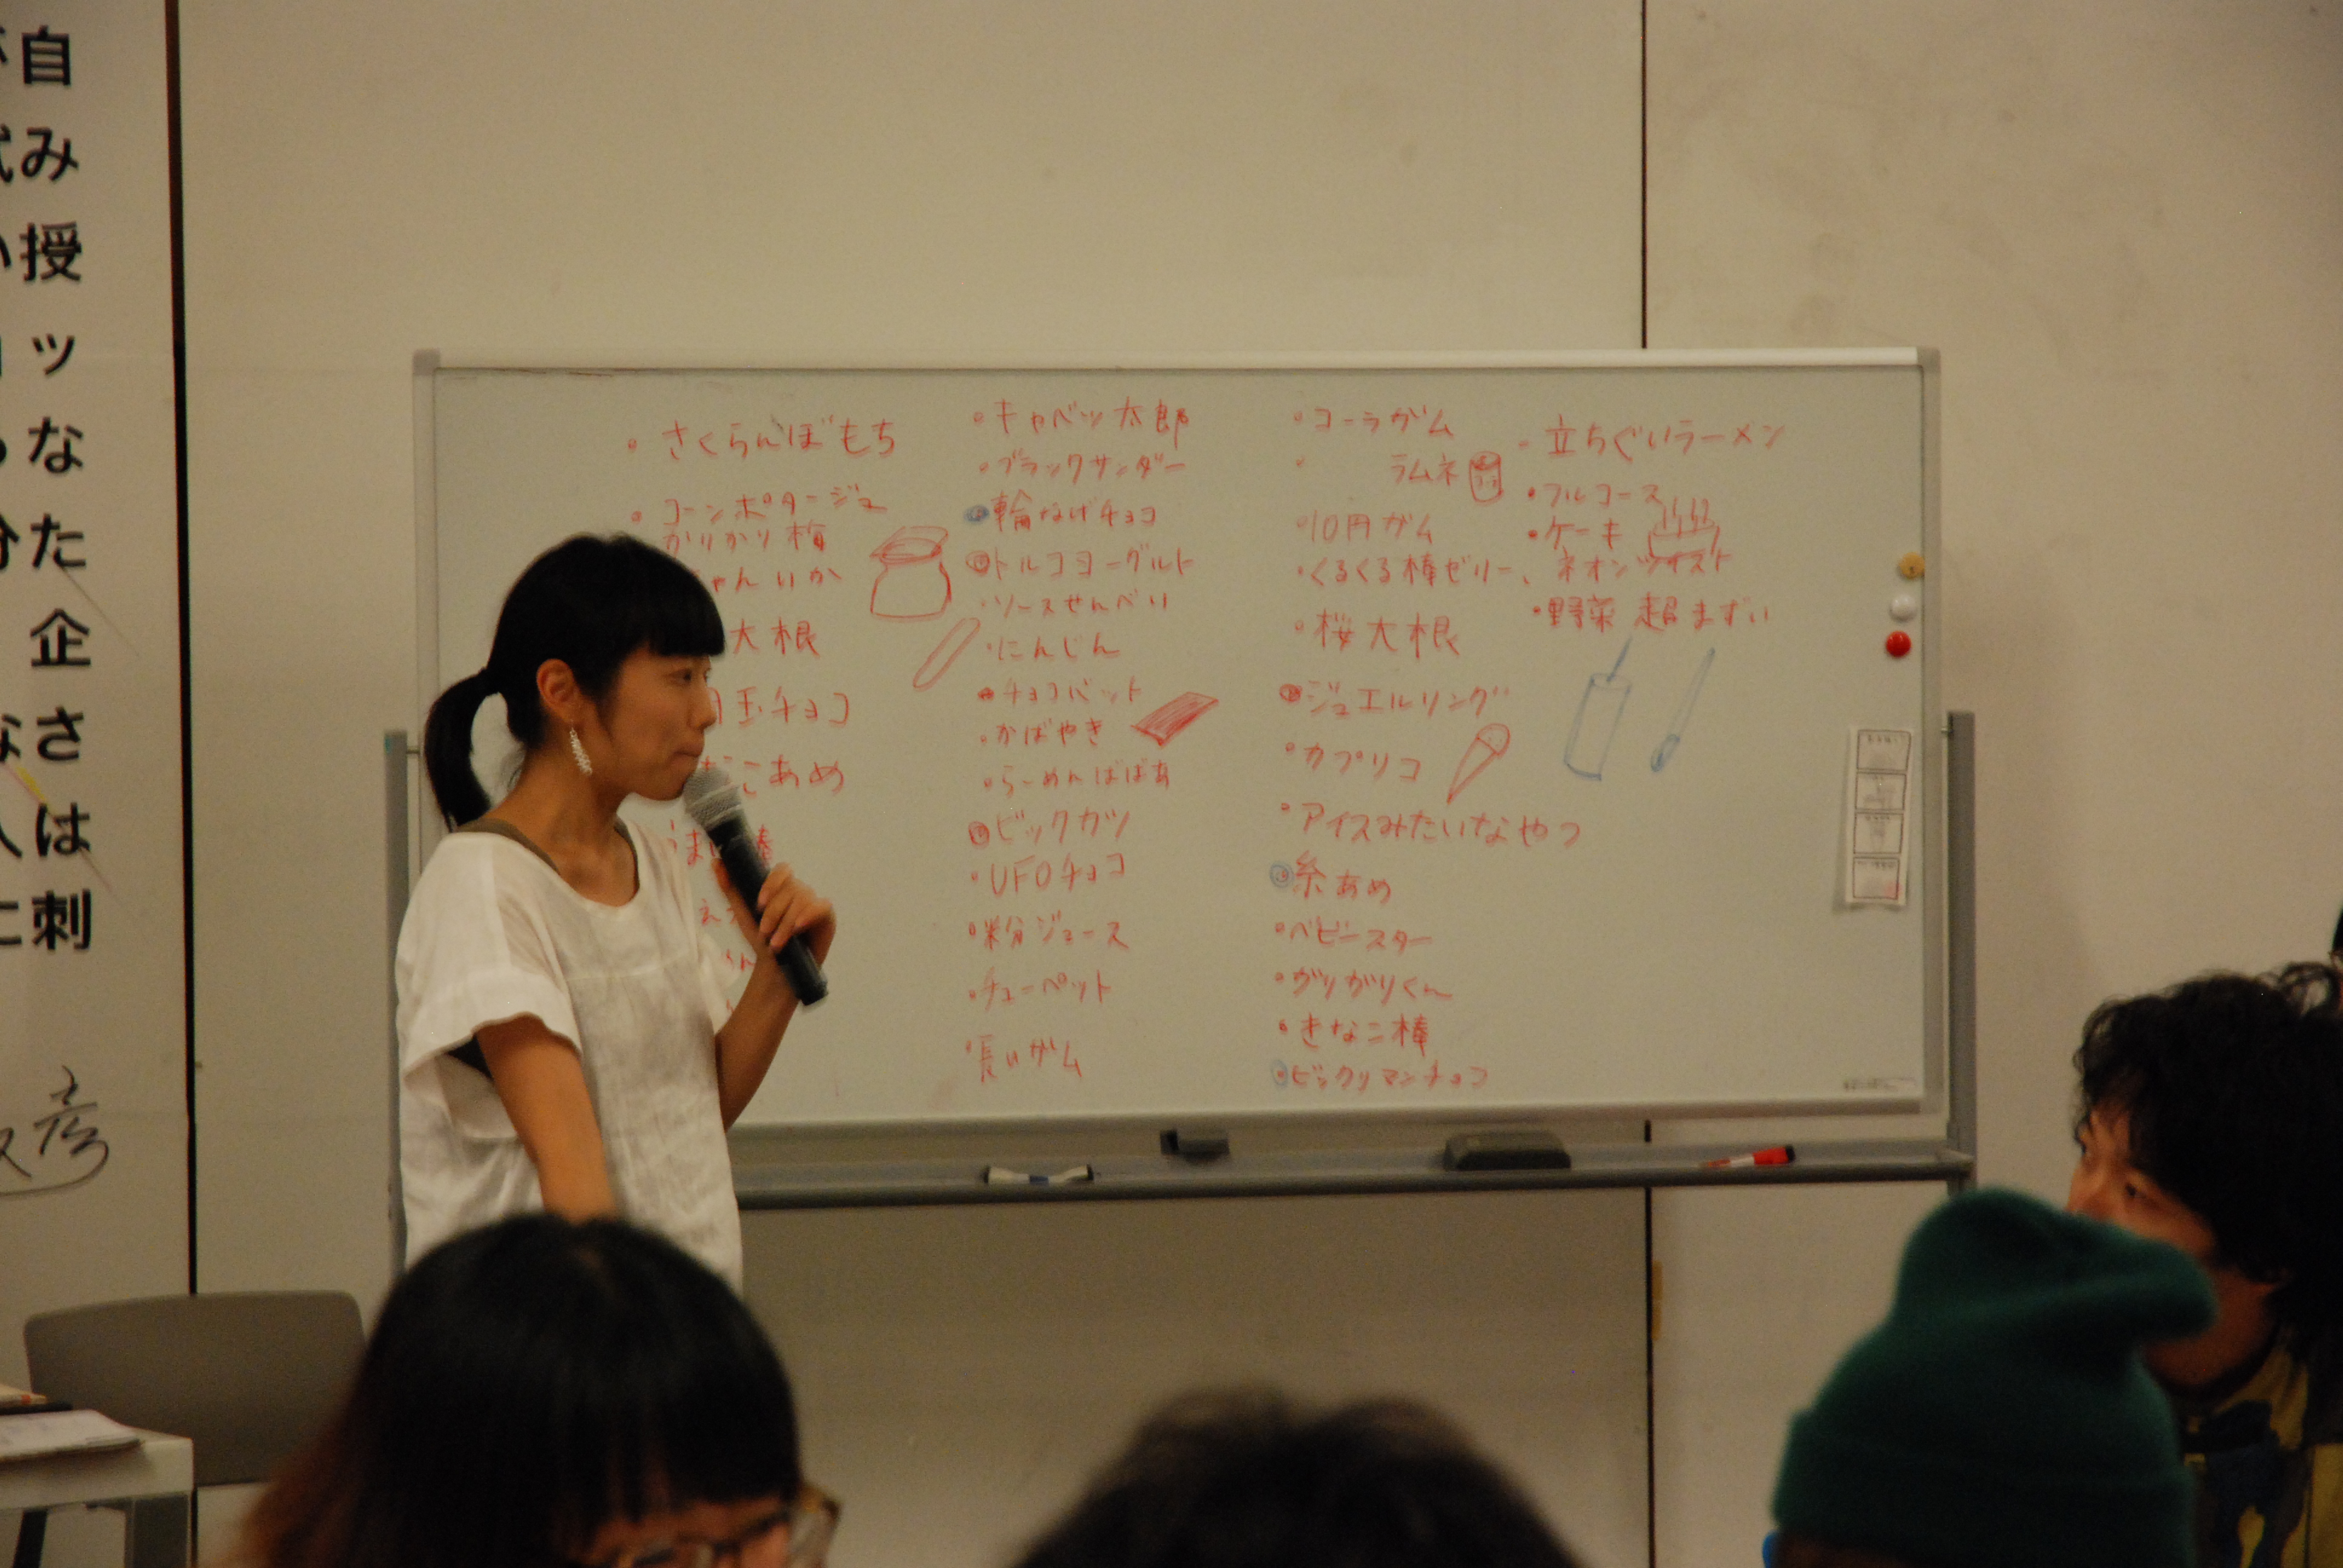 自
み
授
ッ
な
た
企
さ
は
刺
彦
さくらんぼもち
コーンポタージュ
かりかり梅
ゃんいか
大根
玉チョコ
こあめ
うまい棒
キャベツ太郎
ブラックサンダー
輪なげチョコ
トルコヨーグルト
ソースせんべい
にんじん
チョコバット
かばやき
らーめんばばあ
ビックカツ
UFOチョコ
粉ジュース
チューペット
長いガム
コーラガム
ラムネ
10円ガム
くるくる棒ゼリー、ネオンツイスト
桜大根
ジュエルリング
カプリコ
アイスみたいなやつ
糸あめ
ベビースター
ガリガリくん
きなこ棒
ビックリマンチョコ
立ちぐいラーメン
フルコース
ケーキ
野菜 超まずい